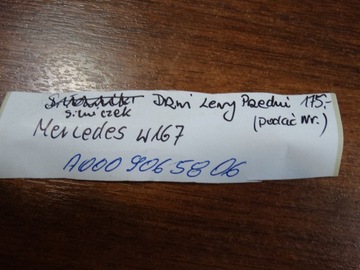 silniczek Drzwi Lewy Przedni 175.-
(podać Nr.)
Mercedes W167
A000 906 58 06